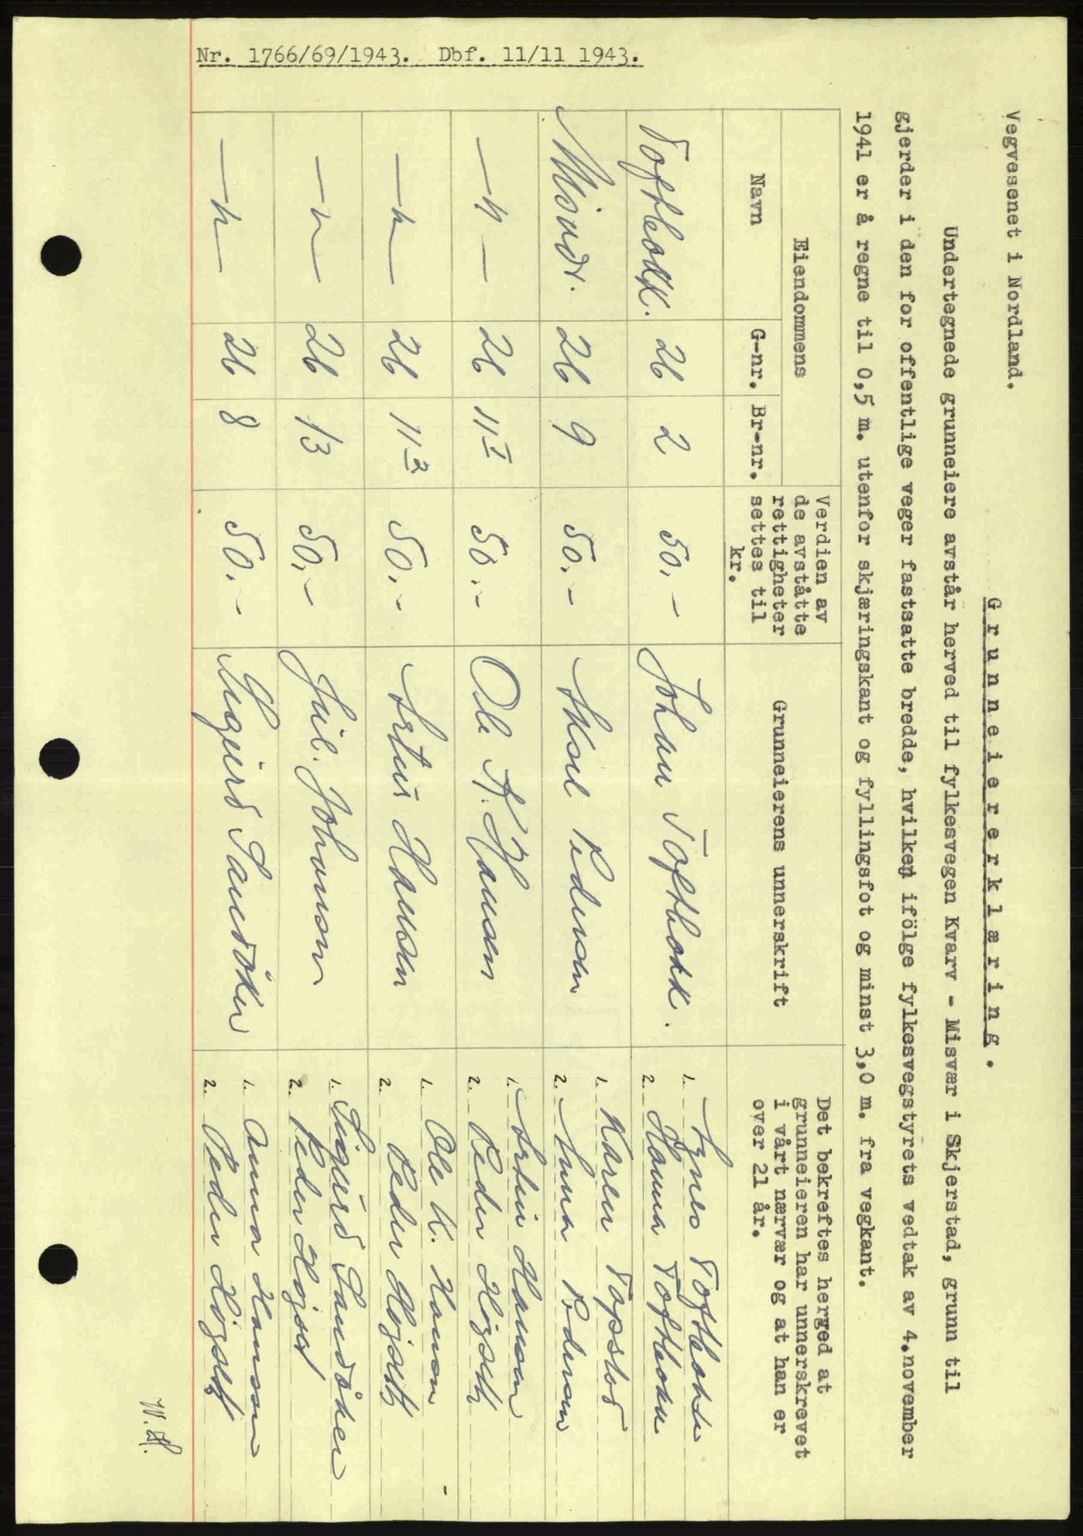 Nr. 1766/69/1943. Dbf. 11/11 1943.
Vegvesenet i Nordland.
Grunneiererklæring.
Undertegnede grunneiere avstår herved til fylkesvegen Kvarv - Misvær i Skjerstad, grunn til
gjerder i den for offentlige veger fastsatte bredde, hvilken ifölge fylkesvegstyrets vedtak av 4.november
1941 er å regne til 0,5 m. utenfor skjæringskant og fyllingsfot og minst 3,0 m. fra vegkant.
Eiendommens
Navn G-nr. Br-nr.
Verdien av
de avståtte
rettigheter
settes til
kr.
Grunneierens unnerskrift
Det bekreftes herved at
grunneieren har unnerskrevet
i vårt nærvær og at han er
over 21 år.
26 2 50.- Johan
1. Agnes
2. Hanna
26 9 50.- Aksel Pedersen
1. Karen
2. Anna Pedersen
-"- 26 11 1 50.- Ole K. Hansen
1. Artur Hansen
2. Peder Högseth
-"- 26 11 2 50.- Artur Hansen
1. Ole K. Hansen
2. Peder Högseth
-"- 26 13 50,- Jul. Johansen
1. Sigurd Sandåker
2. Peder Högset
-"- 26 8 50.- Sigurd Sandåker
1. Anna Hansen
2. Peder Högseth